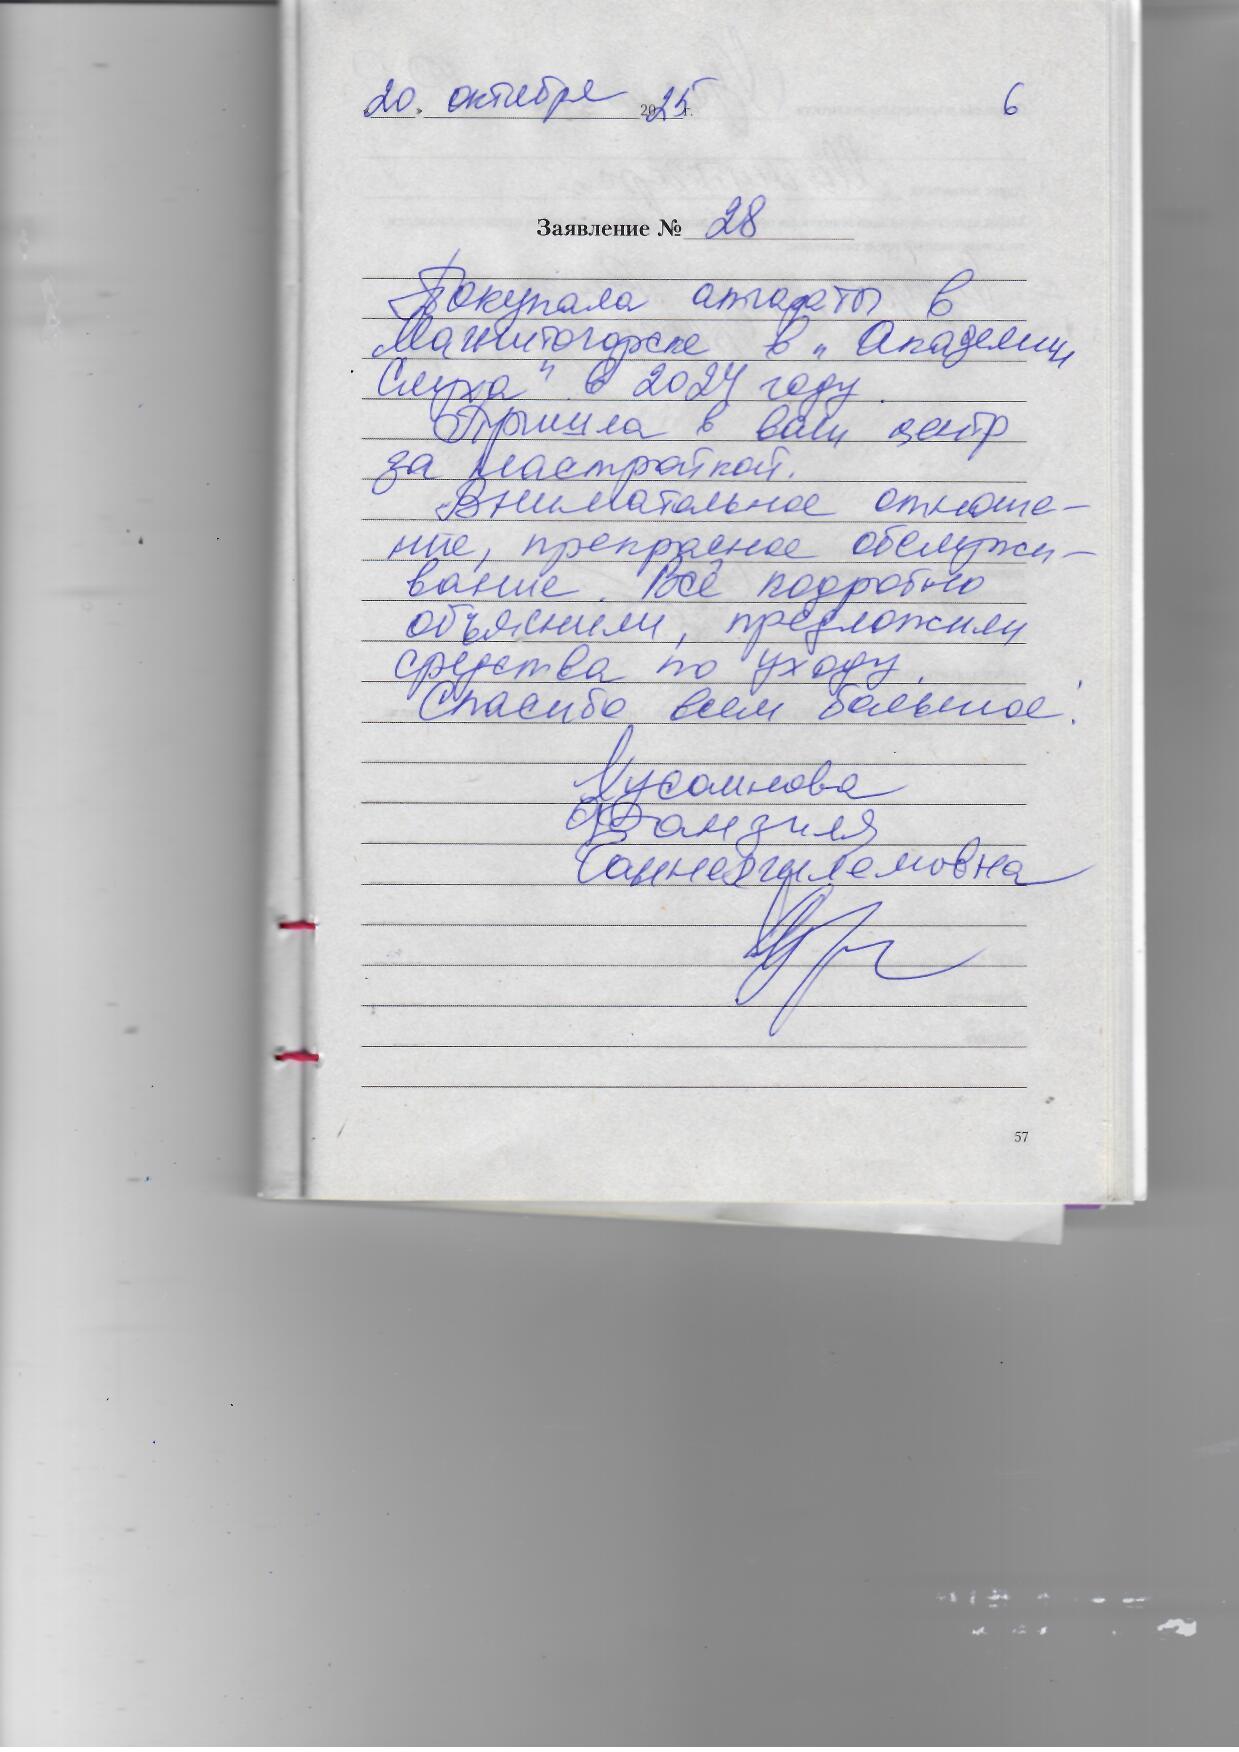 20. октября 2025 г. 6
Заявление № 28
Покупала аппараты в
Магнитогорске в „Академии
Слуха" в 2024 году.
Пришла в ваш центр
за настройкой.
Внимательное отноше-
ние, прекрасное обслужи-
вание. Всё подробно
объяснили, предложили
средства по уходу.
Спасибо всем большое!
Фанзиля
57